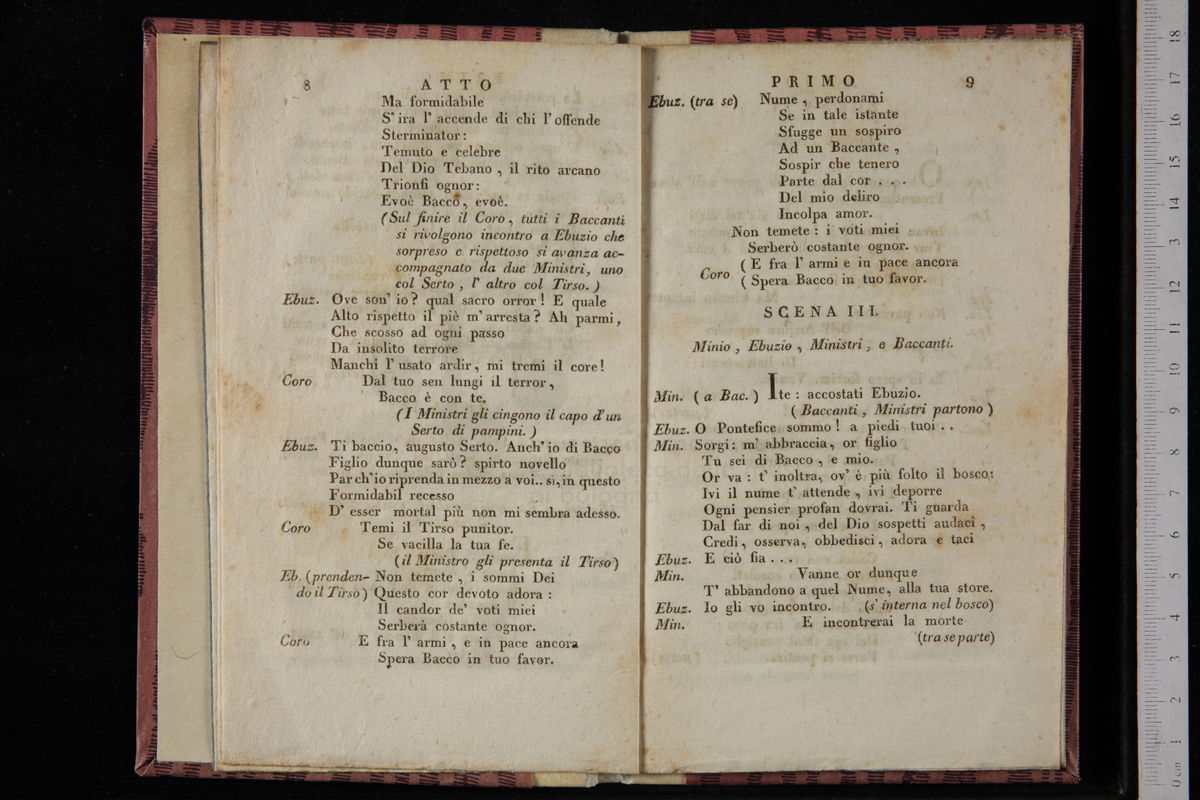 8 ATTO
Ma formidabile
S' ira l' accende di chi l' offende
Sterminator:
Temuto e celebre
Del Dio Tebano, il rito arcano
Trionfi ognor:
Evoè Bacco, evoè.
(Sul finire il Coro, tutti i Baccanti
si rivolgono incontro a Ebuzio che
sorpreso e rispettoso si avanza ac-
compagnato da due Ministri, uno
col Serto, l' altro col Tirso.)
Ebuz. Ove son' io? qual sacro orror! E quale
Alto rispetto il piè m' arresta? Ah parmi,
Che scosso ad ogni passo
Da insolito terrore
Manchi l' usato ardir, mi tremi il core!
Coro Dal tuo sen lungi il terror,
Bacco è con te.
(I Ministri gli cingono il capo d' un
Serto di pampini.)
Ebuz. Ti baccio, augusto Serto. Anch' io di Bacco
Figlio dunque sarò? spirto novello
Par ch'io riprenda in mezzo a voi.. si, in questo
Formidabil recesso
D' esser mortal più non mi sembra adesso.
Coro Temi il Tirso punitor.
Se vacilla la tua fe.
(il Ministro gli presenta il Tirso)
Eb. (prenden- Non temete, i sommi Dei
do il Tirso) Questo cor devoto adora:
Il candor de' voti miei
Serberà costante ognor.
Coro E fra l' armi, e in pace ancora
Spera Bacco in tuo favor.
PRIMO 9
Ebuz. (tra se) Nume, perdonami
Se in tale istante
Sfugge un sospiro
Ad un Baccante,
Sospir che tenero
Parte dal cor . . .
Del mio deliro
Incolpa amor.
Non temete: i voti miei
Serberò costante ognor.
( E fra l' armi e in pace ancora
Coro
( Spera Bacco in tuo favor.
SCENA III.
Minio, Ebuzio, Ministri, e Baccanti.
Min. (a Bac.) Ite: accostati Ebuzio.
(Baccanti, Ministri partono)
Ebuz. O Pontefice sommo! a piedi tuoi . .
Min. Sorgi: m' abbraccia, or figlio
Tu sei di Bacco, e mio.
Or va: t' inoltra, ov' è più folto il bosco:
Ivi il nume t' attende, ivi deporre
Ogni pensier profan dovrai. Ti guarda
Dal far di noi, del Dio sospetti audaci,
Credi, osserva, obbedisci, adora e taci
Ebuz. E ciò fia . . .
Min. Vanne or dunque
T' abbandono a quel Nume, alla tua store.
Ebuz. Io gli vo incontro. (s' interna nel bosco)
Min. E incontrerai la morte
(tra se parte)
0 cm 1 2 3 4 5 6 7 8 9 10 11 12 13 14 15 16 17 18